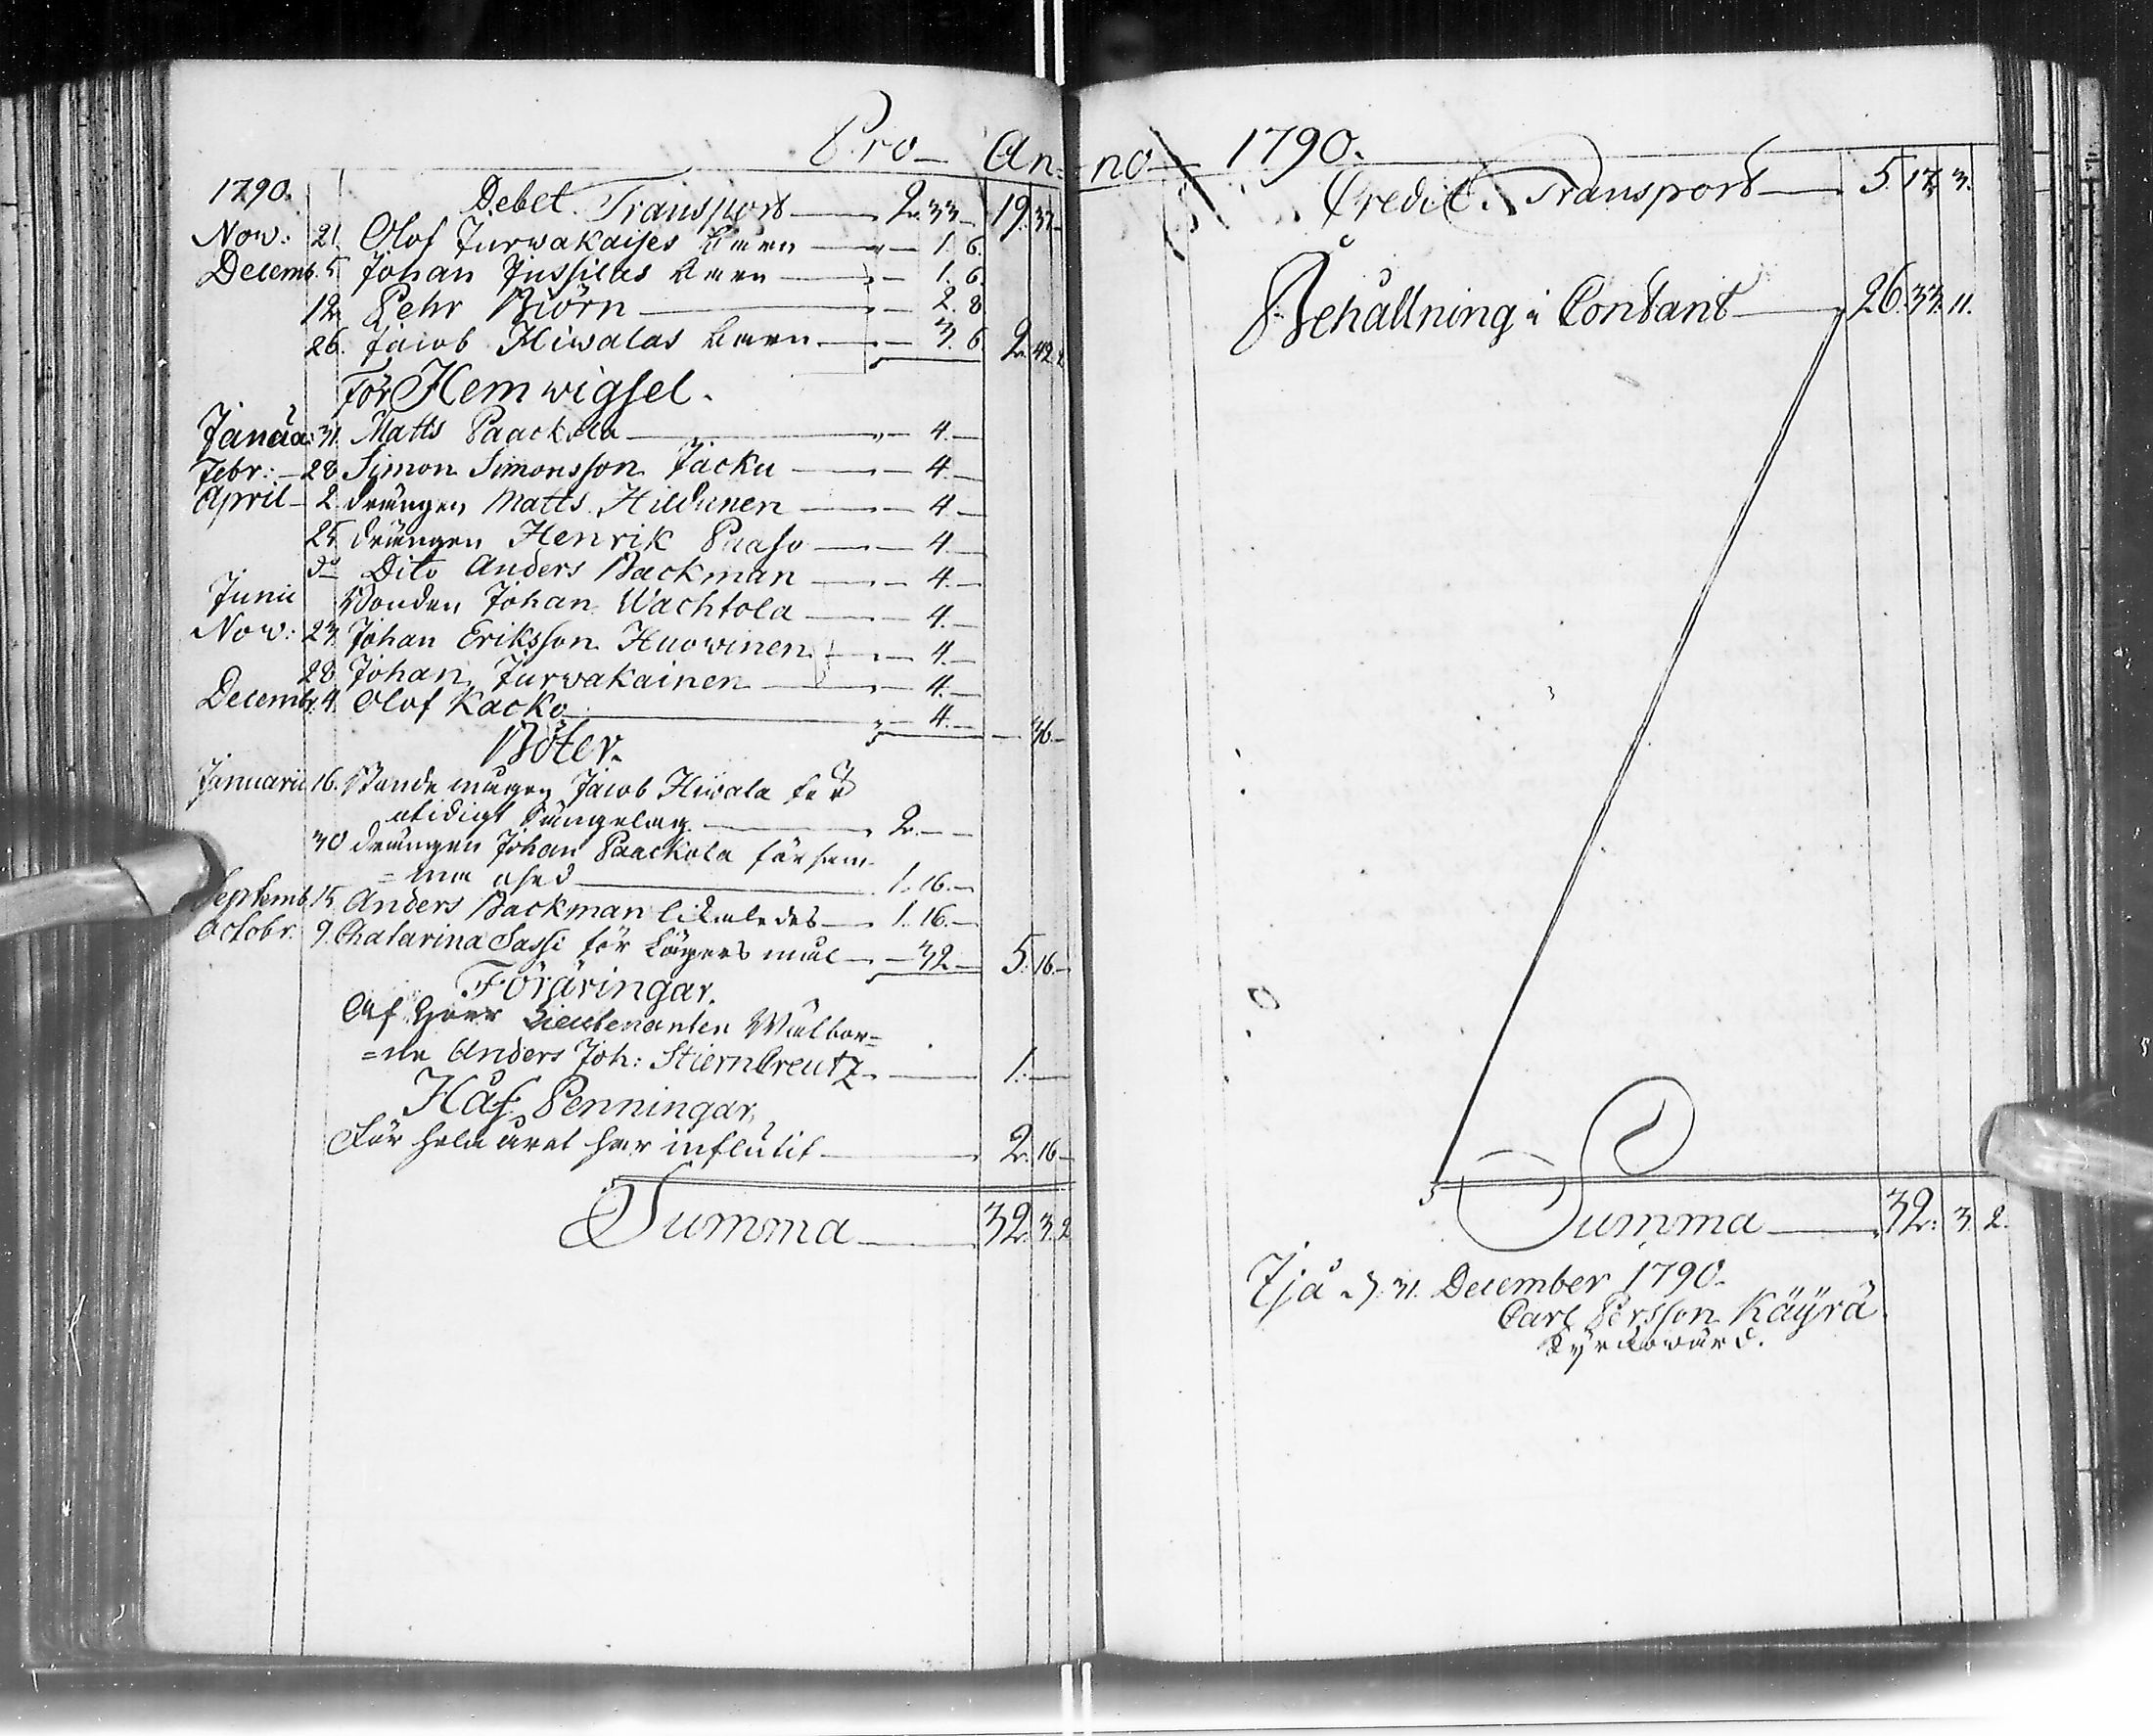 Pro Anno 1790.
1790. Debet. Transport 2. 33 19. 37
Now: 21. Olof Jurwakaises barn 1. 6.
Decemb. 5. Johan Jussilas barn 1. 6.
12. Pehr Biörn 2. 8
26. Jacob Hiwalas barn 3. 6 2. 42. 2
För Hemwigsel.
Janua: 31. Matts Paackola 4.
Febr: 28 Simon Simonsson Jacku 4.
April 2. drängen Matts Hildunen 4.
25 drängen Henrik Paaso 4.
do Dito Anders Backman 4.
Junii Bonden Johan Wachtola 4.
Now: 23. Johan Eriksson Huowinen 4.
28 Johan Jurwakainen 4.
Decembr. 4. Olof Kacko 4. 36
Böter.
Januarii 16. Bonde mågen Jacob Hiwala för
otidigt sängelag 2.
30 drängen Johan Paackola för sam-
=ma 1. 16.
Septemb. 15 Anders Backman likaledes 1. 16.
Octobr. 9. Chatarina Sassi för Lägersmål 32 5. 16
Föräringar.
Af Herr Lieutenanten Wälbor=
=ne Anders Joh: StiernCreutz 1.
Håf Penningar,
För hela året har influtit 2. 16
Summa 32. 3. 2
Credit. Transport 5 17. 3.
Behållning i Contant 26. 33. 11.
Summa 32. 3. 2.
Ijå d. 31. December 1790.
Carl Persson Käyrä
Kyrkowärd.